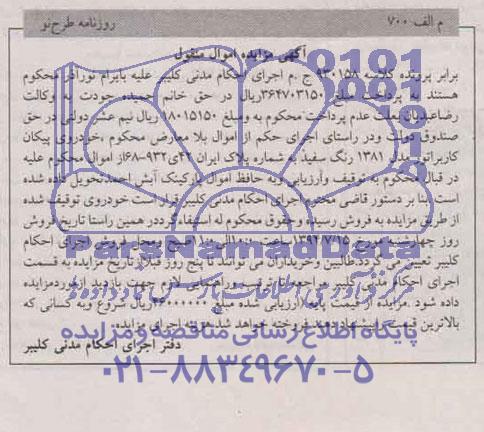 روزنامه طرح‌نو
م الف ۷۰۰
آگهی مزایده اموال منقول
برابر پرونده کلاسه ۹۳۰۱۵۸ ج .م اجرای احکام مدنی کلیبر علیه بایرام نورآذر محکوم
هستند به پرداخت مبلغ ۳۶۴۷۰۳۱۵۰ریال در حق خانم حمیده جودت به وکالت
رضاعبدیان بعلت عدم پرداخت محکوم به ومبلغ ۱۸۰۱۵۱۵۰ ریال نیم عشر دولتی در حق
صندوق دولت ودر راستای اجرای حکم از اموال بلا معارض محکوم ،خودروی پیکان
کاربراتور مدل ۱۳۸۱ رنگ سفید به شماره پلاک ایران ۴۲ی۹۳۲-۶۸از اموال محکوم علیه
در قبال محکوم به توقیف وارزیابی وبه حافظ اموال پارکینگ آتش احمدتحویل داده شده
است بنا بر دستور قاضی محترم اجرای احکام مدنی کلیبر قرار است خودروی توقیف شده
از طریق مزایده به فروش رسیده وحقوق محکوم له استیفاء گردد.در همین راستا تاریخ فروش
روز چهارشنبه مورخ ۱۳۹۴/۷/۱۵ ساعت الی ۱۰صبح ومحل فروش اجرای احکام
کلیبر تعیین می گردد.طالبین وخریداران می توانند پنج روز قبل از تاریخ مزایده به قسمت
اجرای احکام مدنی کلیبر مراجعه تا ترتیب وراهنمایی لازم جهت بازدید ازموردمزایده
داده شود .مزایده از قیمت پایه ارزیابی شده مبلغ ریال شروع وبه کسانی که
بالاترین قیمت پیشنهاد دهند فروخته خواهد شد.هزینه اجرای مزایده
دفتر اجرای احکام مدنی کلیبر
ParsNamadData
پایگاه اطلاع رسانی مناقصه و مزایده
۰۲۱-۸۸۳۴۹۶۷۰-۵